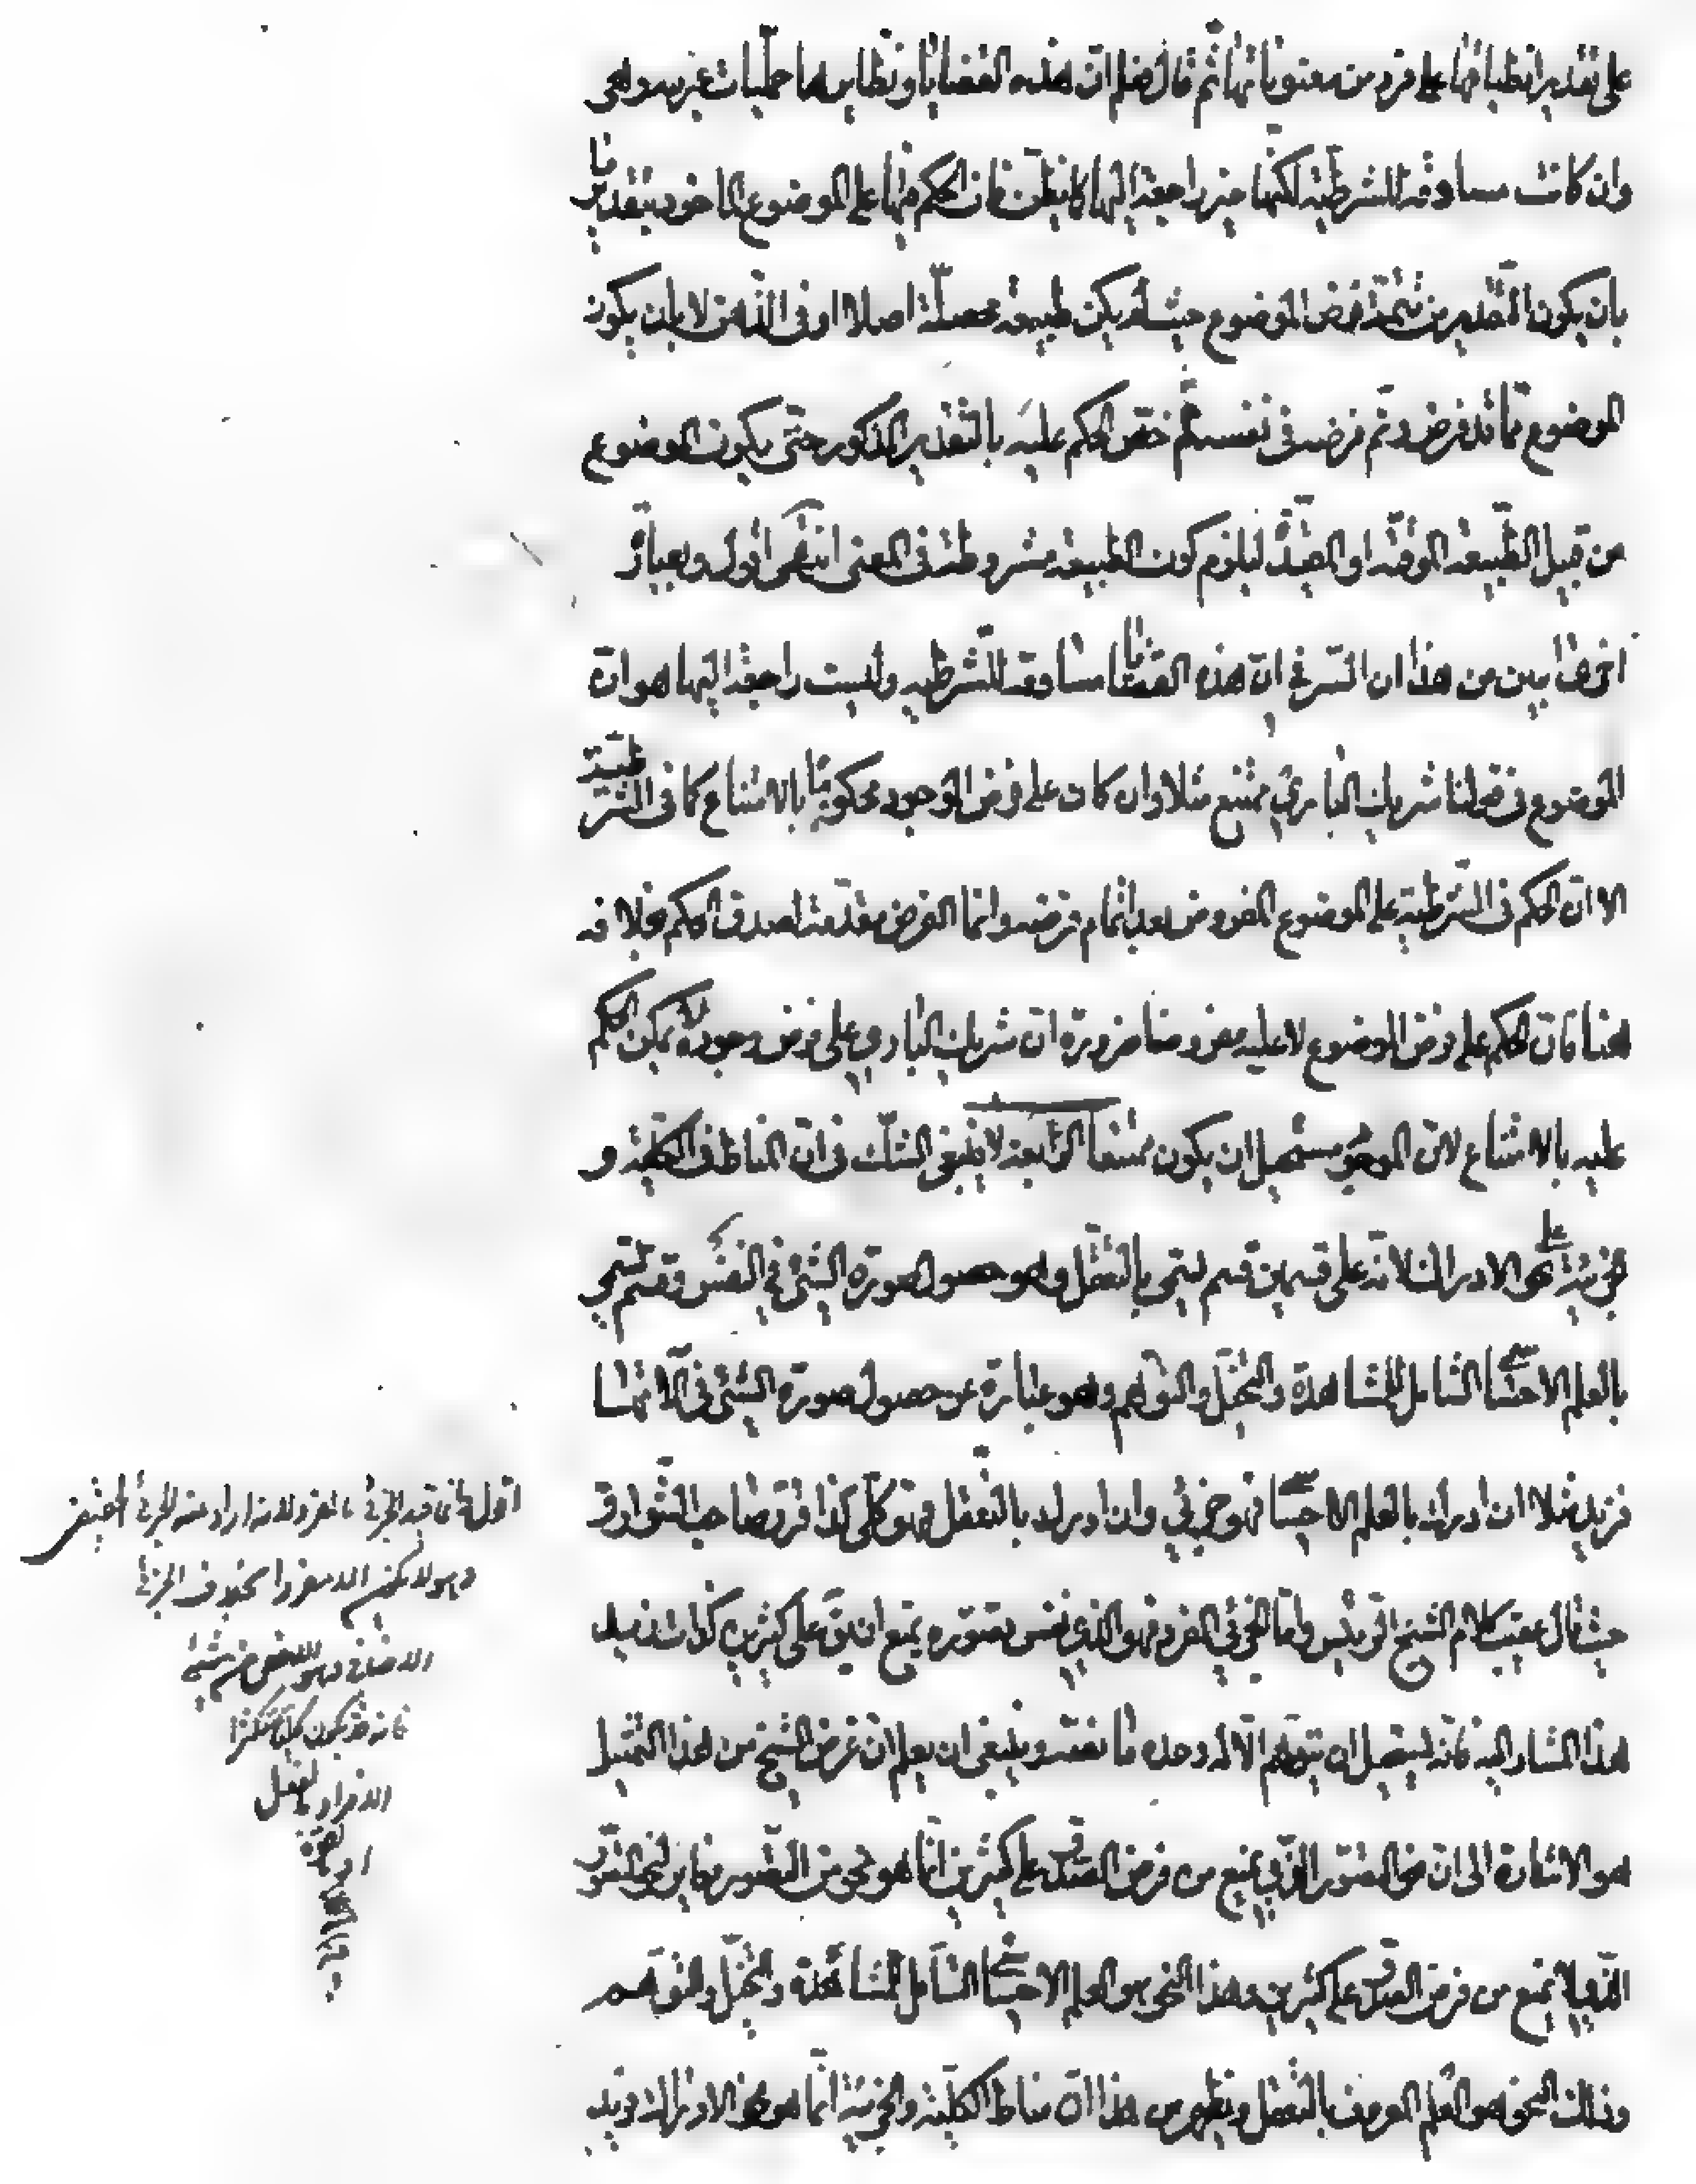 على تقدير انطباقها على فرد من معنوناتها ثم قال فعلم ان هذه القضايا ونظايرها حمليات غير بتية وهي
وان كانت مساوقة للشرطية لكنها غير راجعة اليها كما يظن فان الحكم فيها على الموضوع الماخوذ بتقدير ما
بان يكون التقدير من تتمة فرض الموضوع حيث لم يكن طبيعة محصلة اصلا او في الذهن لا بان يكون
الموضوع مما قد فرض وتم فرضه في نفسه ثم خص الحكم عليه بالتقدير المذكور حتى يكون الموضوع
من قبيل الطبيعة الموقتة او المقيدة ليلزم كون الطبيعة مشروطة في المعنى انتهى اقول وبعبارة
اخرى بين من هذا ان السر في ان هذه القضايا مساوقة للشرطية وليست راجعة اليها هو ان
الموضوع في قولنا شريك الباري ممتنع مثلا وان كان على فرض الوجود محكوما بالامتناع كما في الشرطية
الا ان الحكم في الشرطية على الموضوع المفروض بعد اتمام فرضه وانما الفرض مقدمة لصدق الحكم بخلافه
هنا فان الحكم على فرض الموضوع لا عليه مفروضا ضرورة ان شريك الباري على فرض وجوده لا يمكن الحكم
عليه بالامتناع لان الموجود يستحيل ان يكون ممتنعا الرابعة لا ينبغي الشك في ان المناط في الكلية و
الجزئية على نحو الادراك لانه على قسمين قسم يسمى بالتعقل وهو حصول صورة الشئ في النفس وقسم يسمى
بالعلم الاحساسي الشامل للمشاهدة والتخيل والتوهم وهو عبارة عن حصول صورة الشئ في آلاتها
فزيد مثلا ان ادرك بالعلم الاحساسي فهو جزئي وان ادرك بالتعقل فهو كلي كذا قرر صاحب الشوارق
حيث قال عقيب كلام الشيخ الرئيس واما الجزئي المفرد فهو الذي نفس تصوره يمنع ان يق على كثيرين كذات زيد
هذا المشار اليه فانه يستحيل ان يتوهم الا له وحده ما نصه وينبغي ان يعلم ان غرض الشيخ من هذا التمثيل
هو الاشارة الى ان نحو التصور الذي يمنع من فرض الصدق على كثيرين انما هو نحو من التصور مغاير لنحو التصور
الذي لا يمنع من فرض الصدق على كثيرين وهذا النحو هو العلم الاحساسي الشامل للمشاهدة والتخيل والتوهم
وذلك النحو هو العلم المعروف بالتعقل ويظهر من هذا ان مناط الكلية والجزئية انما هو نحو الادراك فزيد
اقول انما قيد الجزئي بالمفرد لانه اراد منه الجزئي الحقيقي
وهو لا يكون الا مفردا بخلاف الجزئي
الاضافي وهو الاخص من شئ
فانه قد يكون كليا متكثرا
الافراد بالفعل
او بالقوة